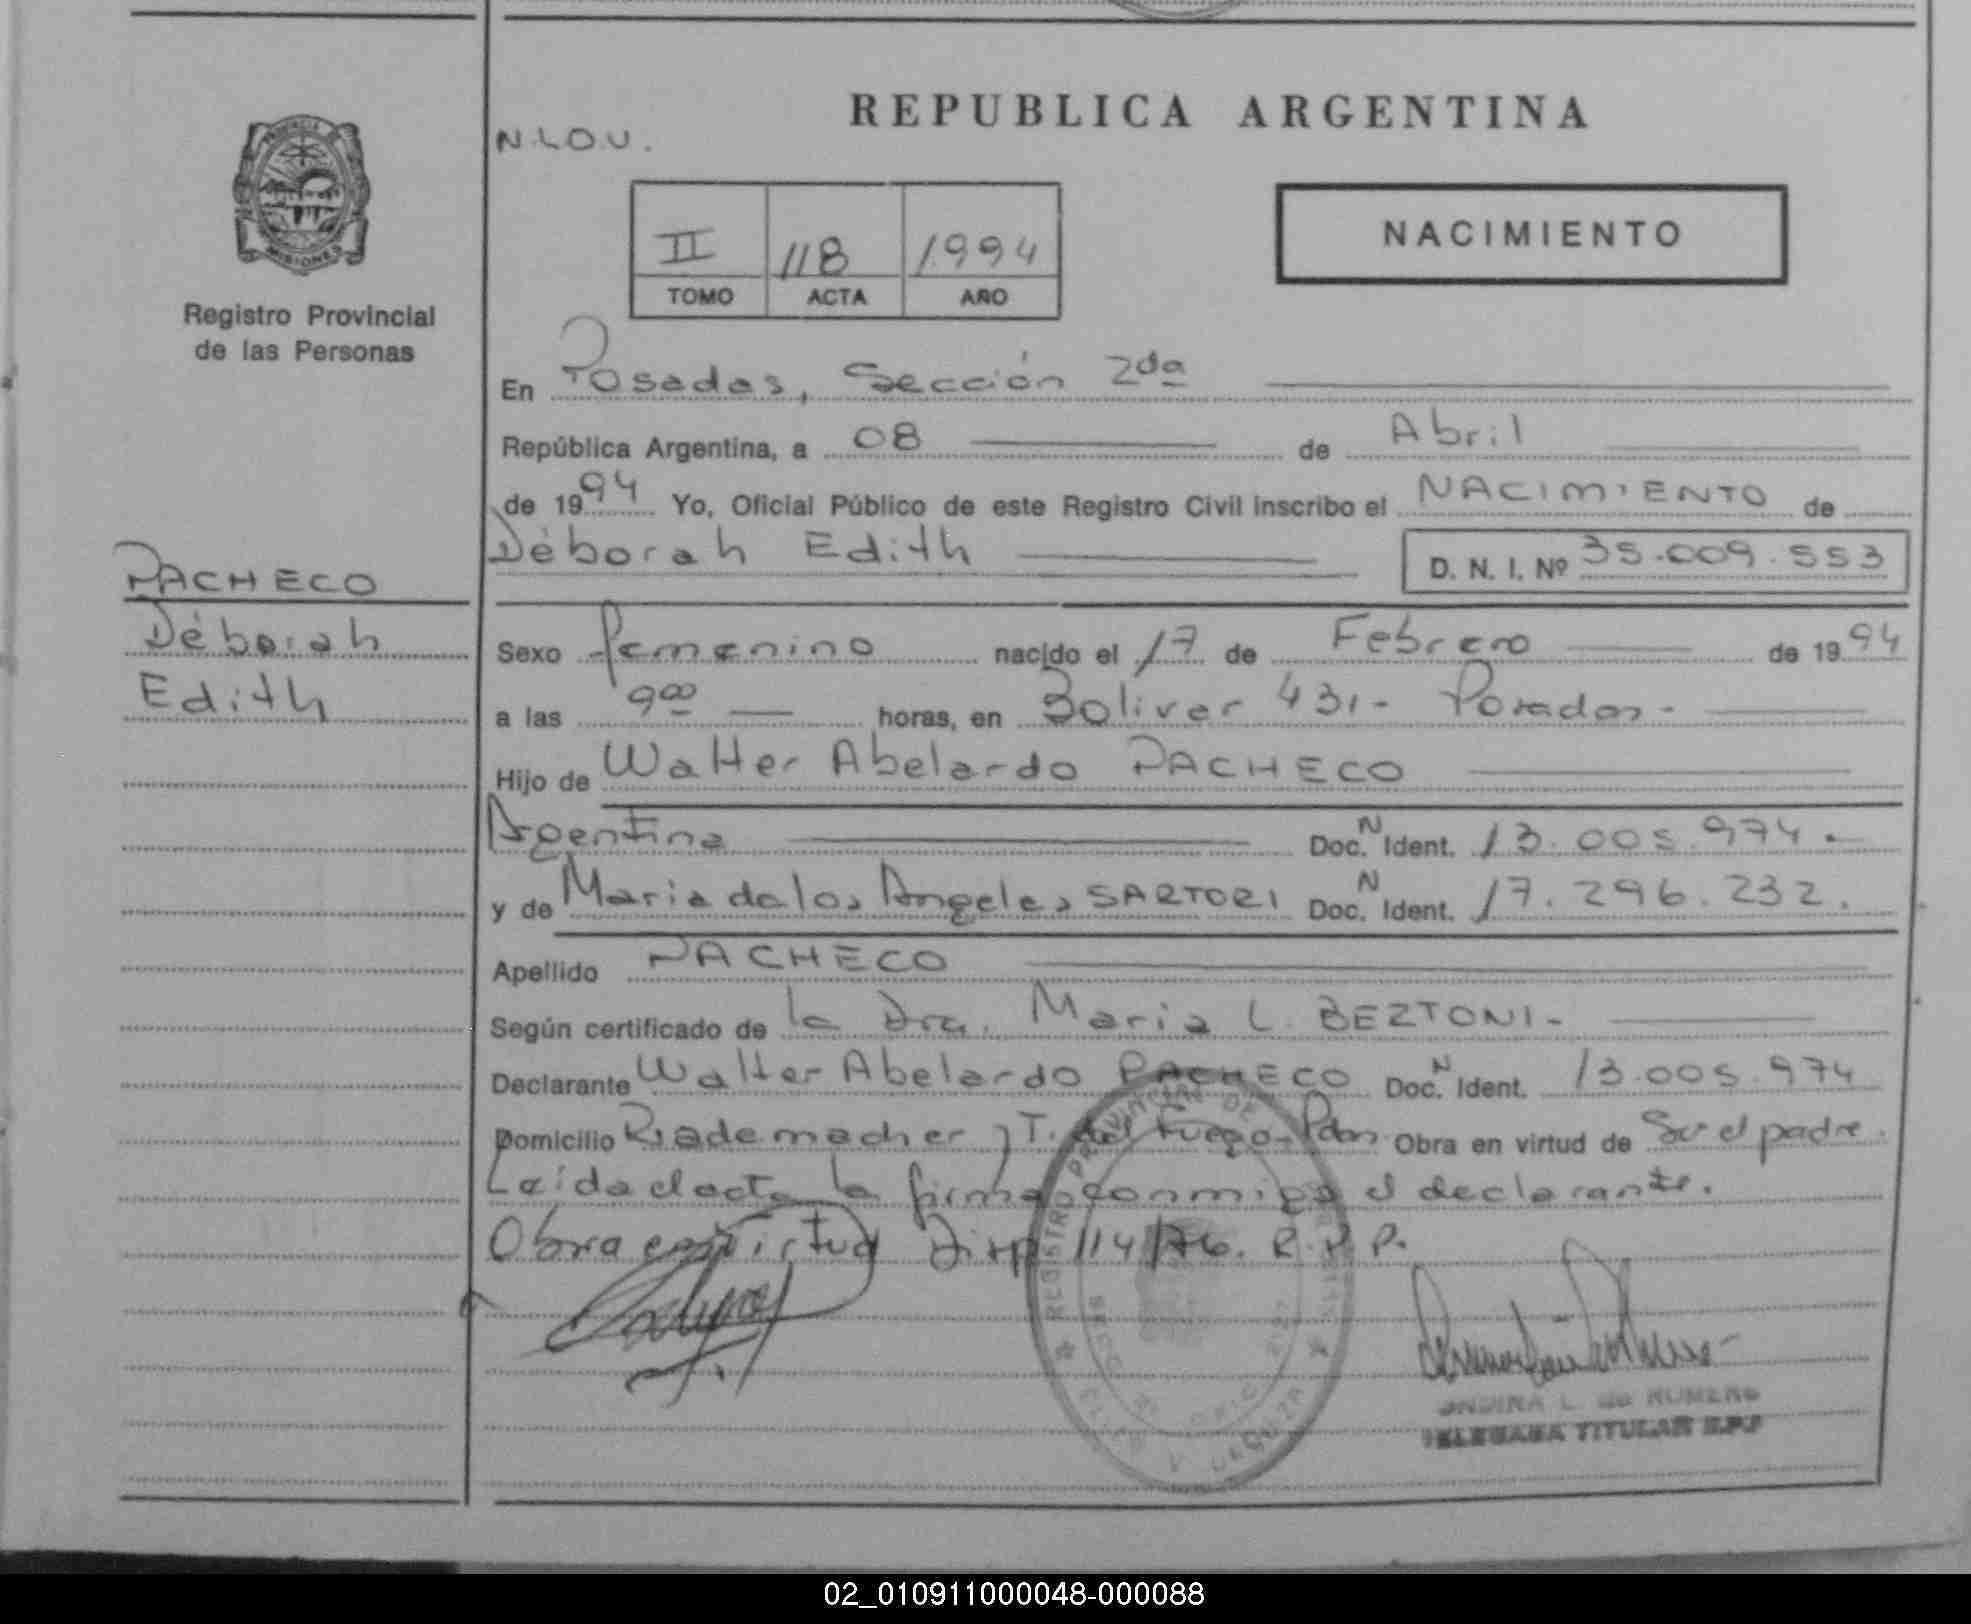 REPUBLICA ARGENTINA
PROVINCIA DE
MISIONES
Registro Provincial
de las Personas
N.L.O.U.
II 118 1994
TOMO ACTA AÑO
NACIMIENTO
En Posadas, Sección 2da
República Argentina, a 08 de Abril
de 1994 Yo, Oficial Público de este Registro Civil inscribo el NACIMIENTO de
Déborah Edith D. N. I. Nº 35.009.553
PACHECO
Déborah
Edith
Sexo femenino nacido el 17 de Febrero de 1994
a las 9 00 horas, en Bolivar 431- Posadas-
Hijo de Walter Abelardo PACHECO
Argentina Doc. N Ident. 13.005.974.-
y de Maria de los Angeles SARTORI Doc. N Ident. 17.296.232.
Apellido PACHECO
Según certificado de la Dra. Maria L. BEZTONI-
Declarante Walter Abelardo PACHECO Doc. N Ident. 13.005.974
Domicilio Rademacher y T. del Fuego- Pdas Obra en virtud de Ser el padre.
Leída el acta la firma conmigo el declarante.
Obra en virtud Disp 114/76. R.P.P.
REGISTRO PROVINCIAL DE
L. de ROMERO
DELEGADA TITULAR R.P.P
02_010911000048-000088